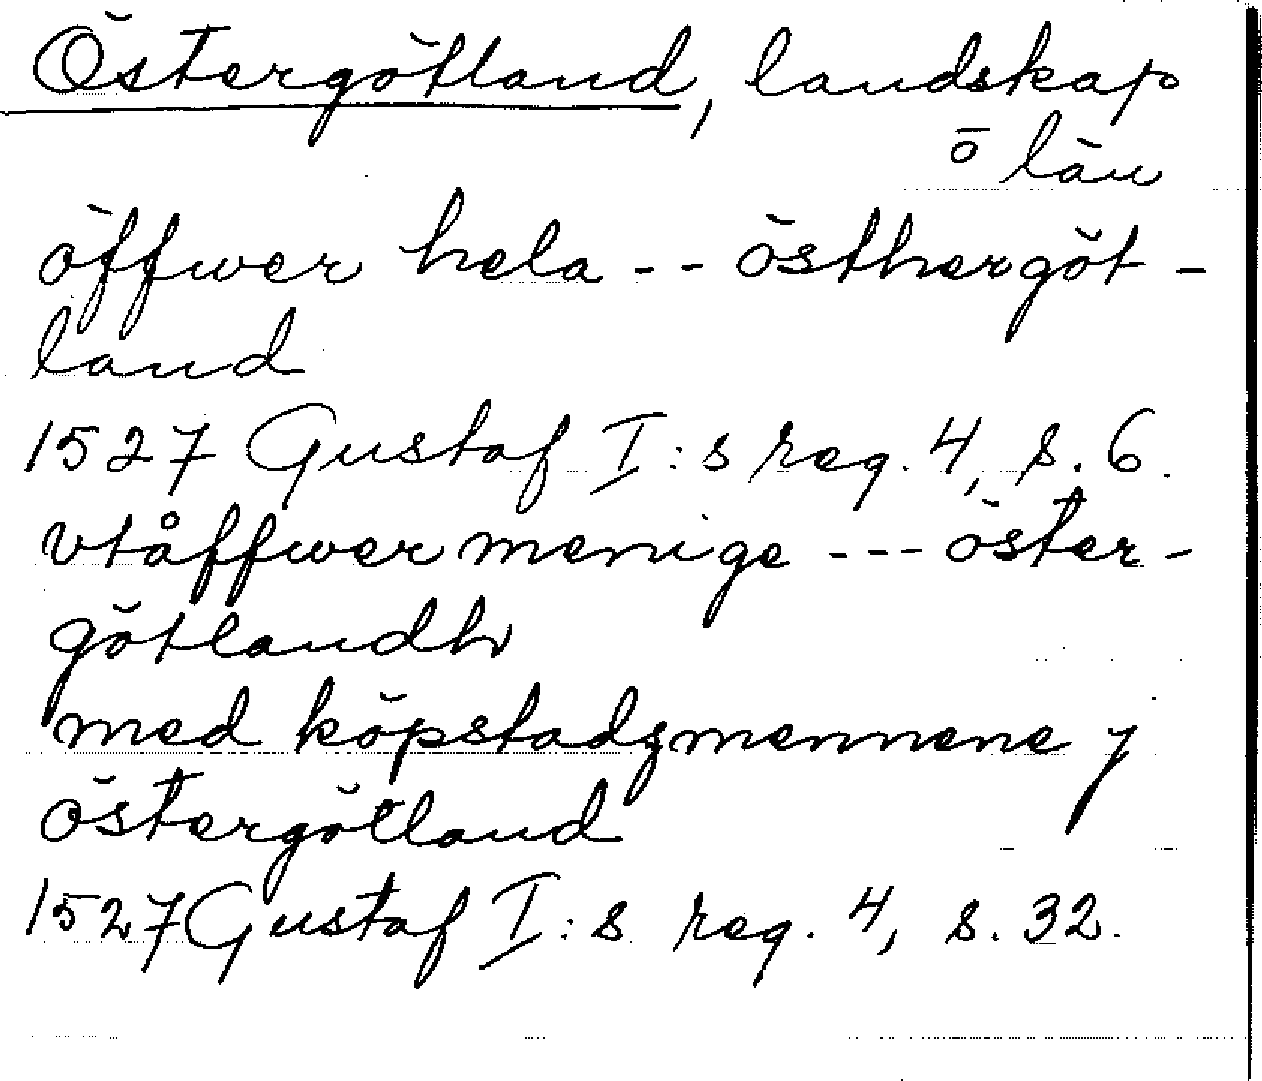 Östergötland, landskap
o län
öffwer hela -- östhergöt-
land
1527 Gustaf I:s reg. 4, s. 6.
vtåffwer menige --- öster-
götlandh
med köpstadzmennene y
östergötland
1527 Gustaf I:s reg. 4, s. 32.